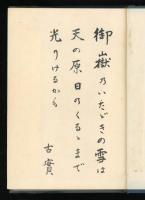 御嶽乃いたゞきの雪は
天の原日のくるゝまで
光りけるかも
古實